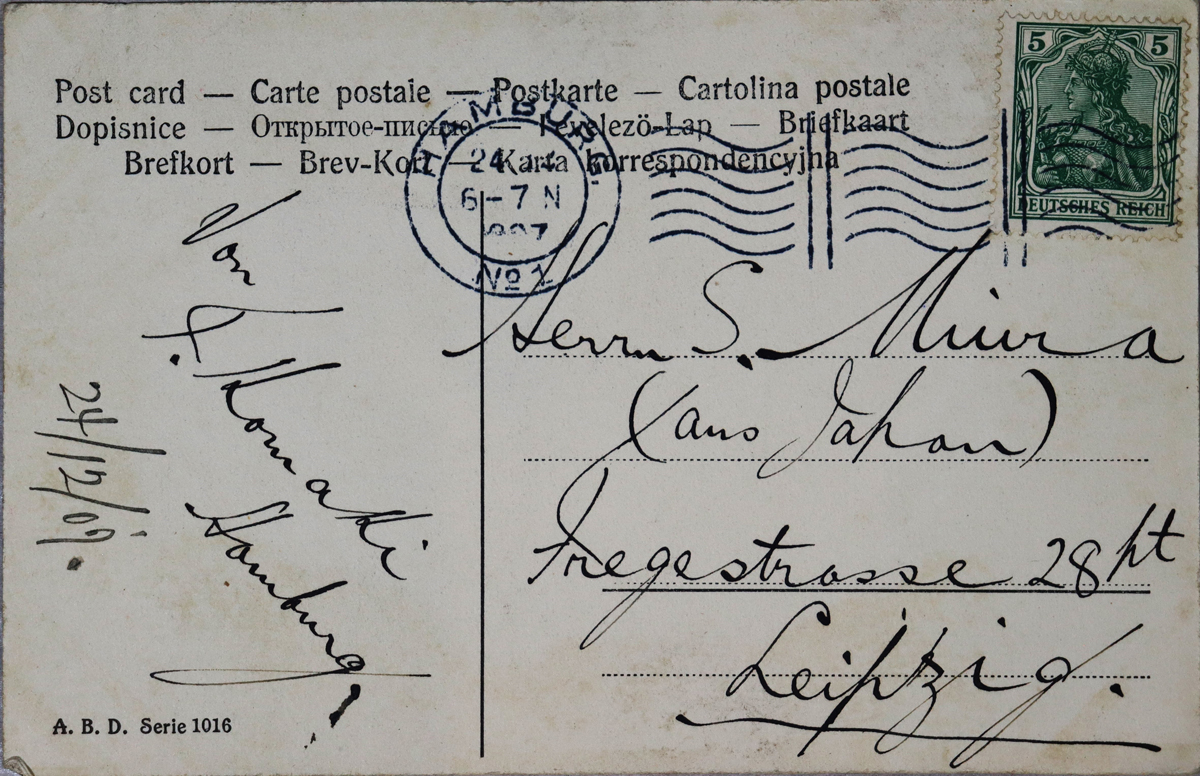 Post card — Carte postale — Postkarte — Cartolina postale
Dopisnice — Открытое-письмо — Levelező-Lap — Briefkaart
Brefkort — Brev-Kort — Karta korrespondencyjna
HAMBURG
24.
6-7 N
No 1
5 5
DEUTSCHES REICH
Von
Komaki
Hamburg.
24/12/07.
Herrn S. Miura
(aus Japan)
Fregestrasse 28 pt
Leipzig.
A. B. D. Serie 1016